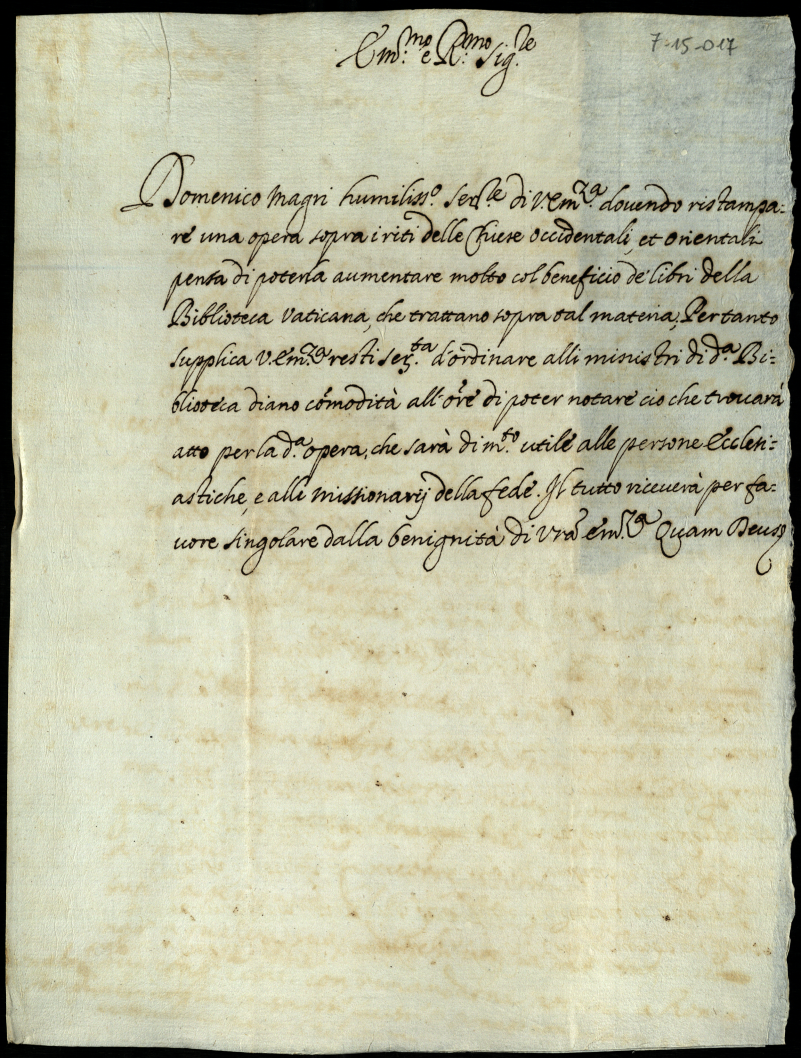 Em.mo e R.mo Sig.re
7-15-017
Domenico Magri humiliss.o ser.re di V. Em.za douendo ristampa-
re una opera sopra i riti delle Chiese Occidentali, et Orientali
pensa di poterla aumentare molto col beneficio de libri della
Biblioteca Vaticana, che trattano sopra tal materia, Per tanto
supplica V. Em.za resti ser.ta d'ordinare alli ministri di d.a Bi-
blioteca diano cōmodità all'ōre di poter notare cio che trouarà
atto per la d.a opera, che sarà di m.to utile alle persone Eccles-
iastiche, e alli Missionarij della fede. Il tutto riceverà per fa-
uore singolare dalla benignità di Vrā Em.za Quam Deus